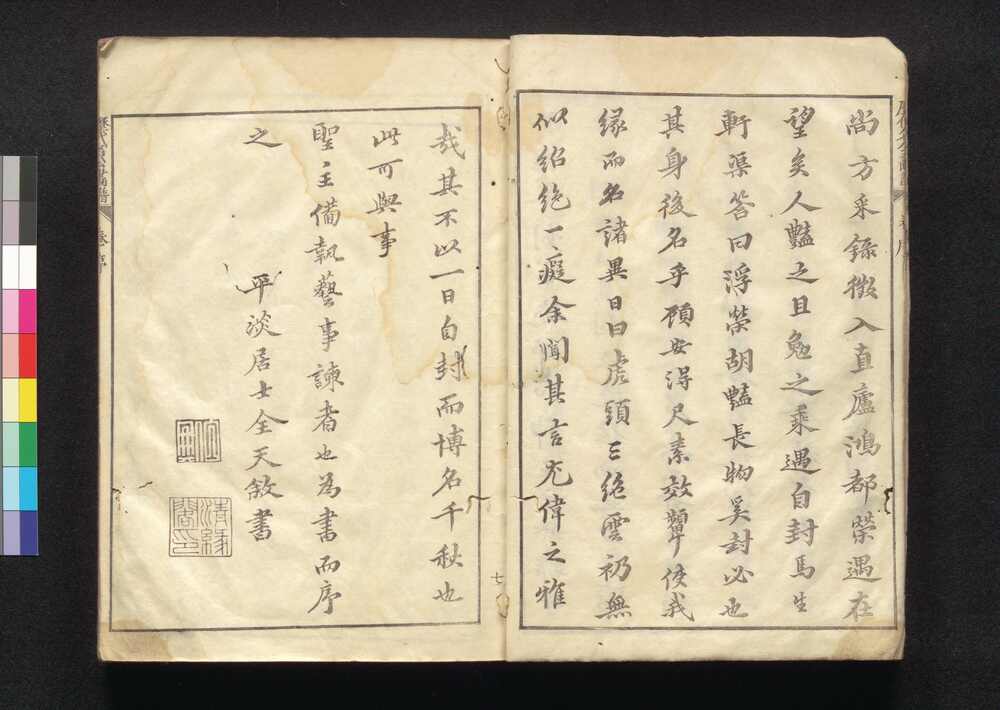 尚方采錄徵入直廬鴻都榮遇在
望矣人豔之且勉之乘遇自封馬生
軒渠答曰浮榮胡豔長物奚封必也
其身後名乎顧安得尺素效顰使我
緣而名諸異日曰虎頭三絕雲礽無
似紹絕一癡余聞其言尤偉之雅
哉其不以一日自封而博名千秋也
此可與事
聖主備執藝事諫者也為書而序
之
平淡居士全天敘書
七